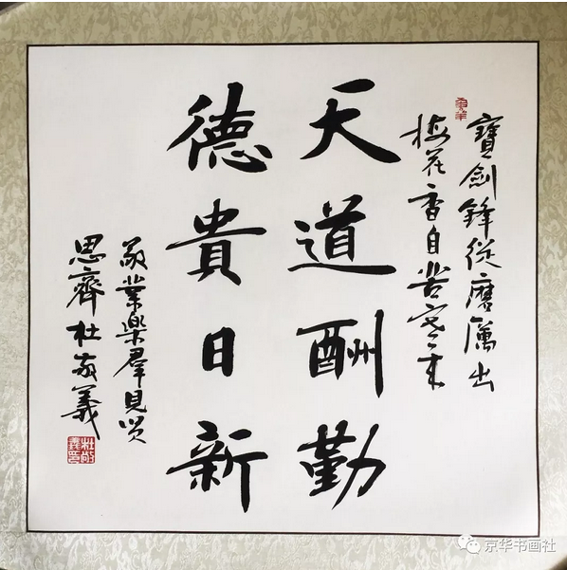 寶劍鋒從磨厲出
梅花香自苦寒来
天道酬勤
德貴日新
敬業樂羣見贤
思齊杜敬義
杜敬義印
京华书画社